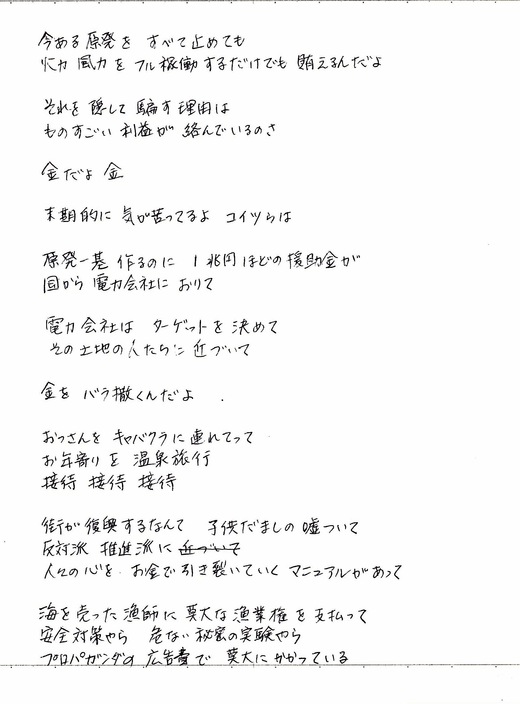 今ある原発を すべて止めても
火力 風力を フル稼働するだけでも 賄えるんだよ
それを 隠して 騙す理由は
ものすごい 利益が 絡んでいるのさ
金だよ 金
末期的に 気が苦ってるよ コイツらは
原発一基 作るのに 1兆円ほどの援助金が
国から 電力会社に おりて
電力会社は ターゲットを 決めて
その土地の人たちに 近づいて
金を バラ撒くんだよ
おっさんを キャバクラに 連れてって
お年寄りを 温泉旅行
接待 接待 接待
街が 復興するなんて 子供だましの 嘘ついて
反対派 推進派に 近づいて
人々の心を お金で引き裂いていく マニュアルがあって
海を売った漁師に 莫大な漁業権を支払って
安全対策やら 危ない秘密の実験やら
プロパガンダの 広告費で 莫大にかかっている